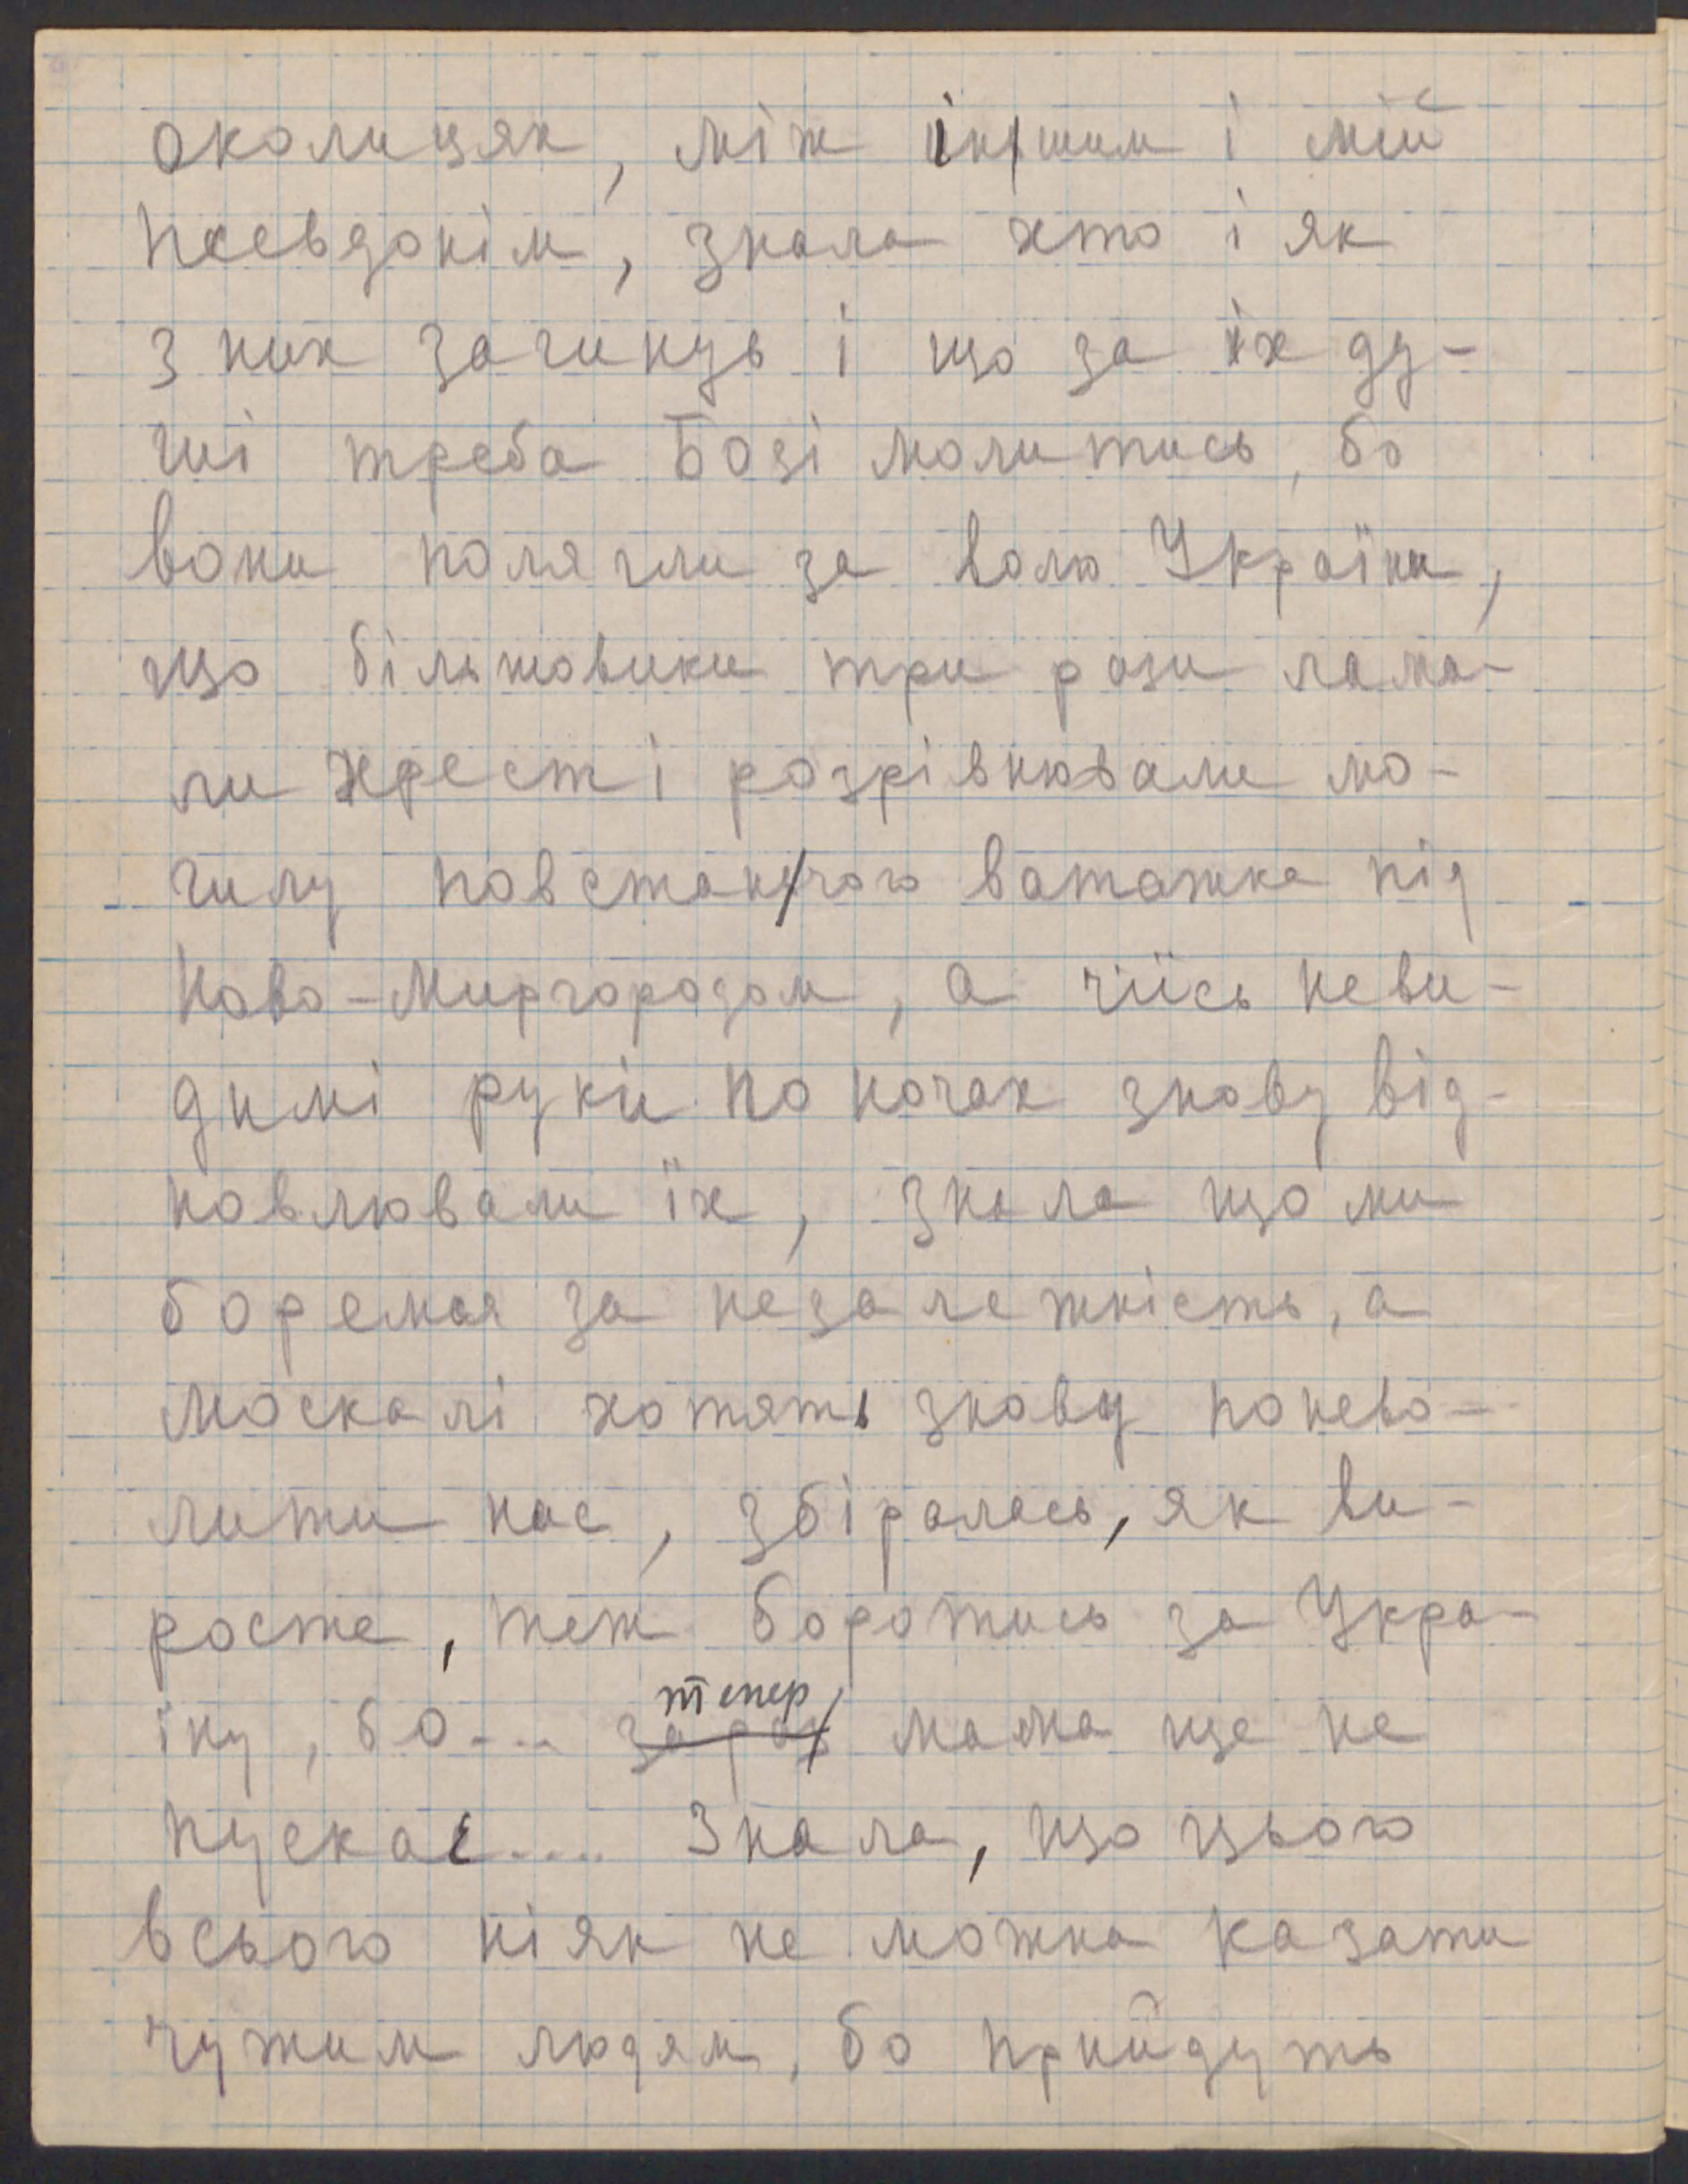 околицях, між іншим і мій
псевдонім, знала хто і як
з них загинув і що за їх ду-
ші треба Бозі молитись, бо
вони полягли за волю України,
що більшовики три рази лама-
ли хрест і розрівнювали мо-
гилу повстанчого ватажка під
Ново-Миргородом, а чиїсь неви-
димі руки по ночах знову від-
новлювали їх, знала що ми
боремся за незалежність, а
москалі хотять знову понево-
лити нас, збіралась, як ви-
росте, теж боротись за Укра-
тепер
їну, бо... зараз мама ще не
пускає.... Знала, що цього
всього ніяк не можна казати
чужим людям, бо прийдуть